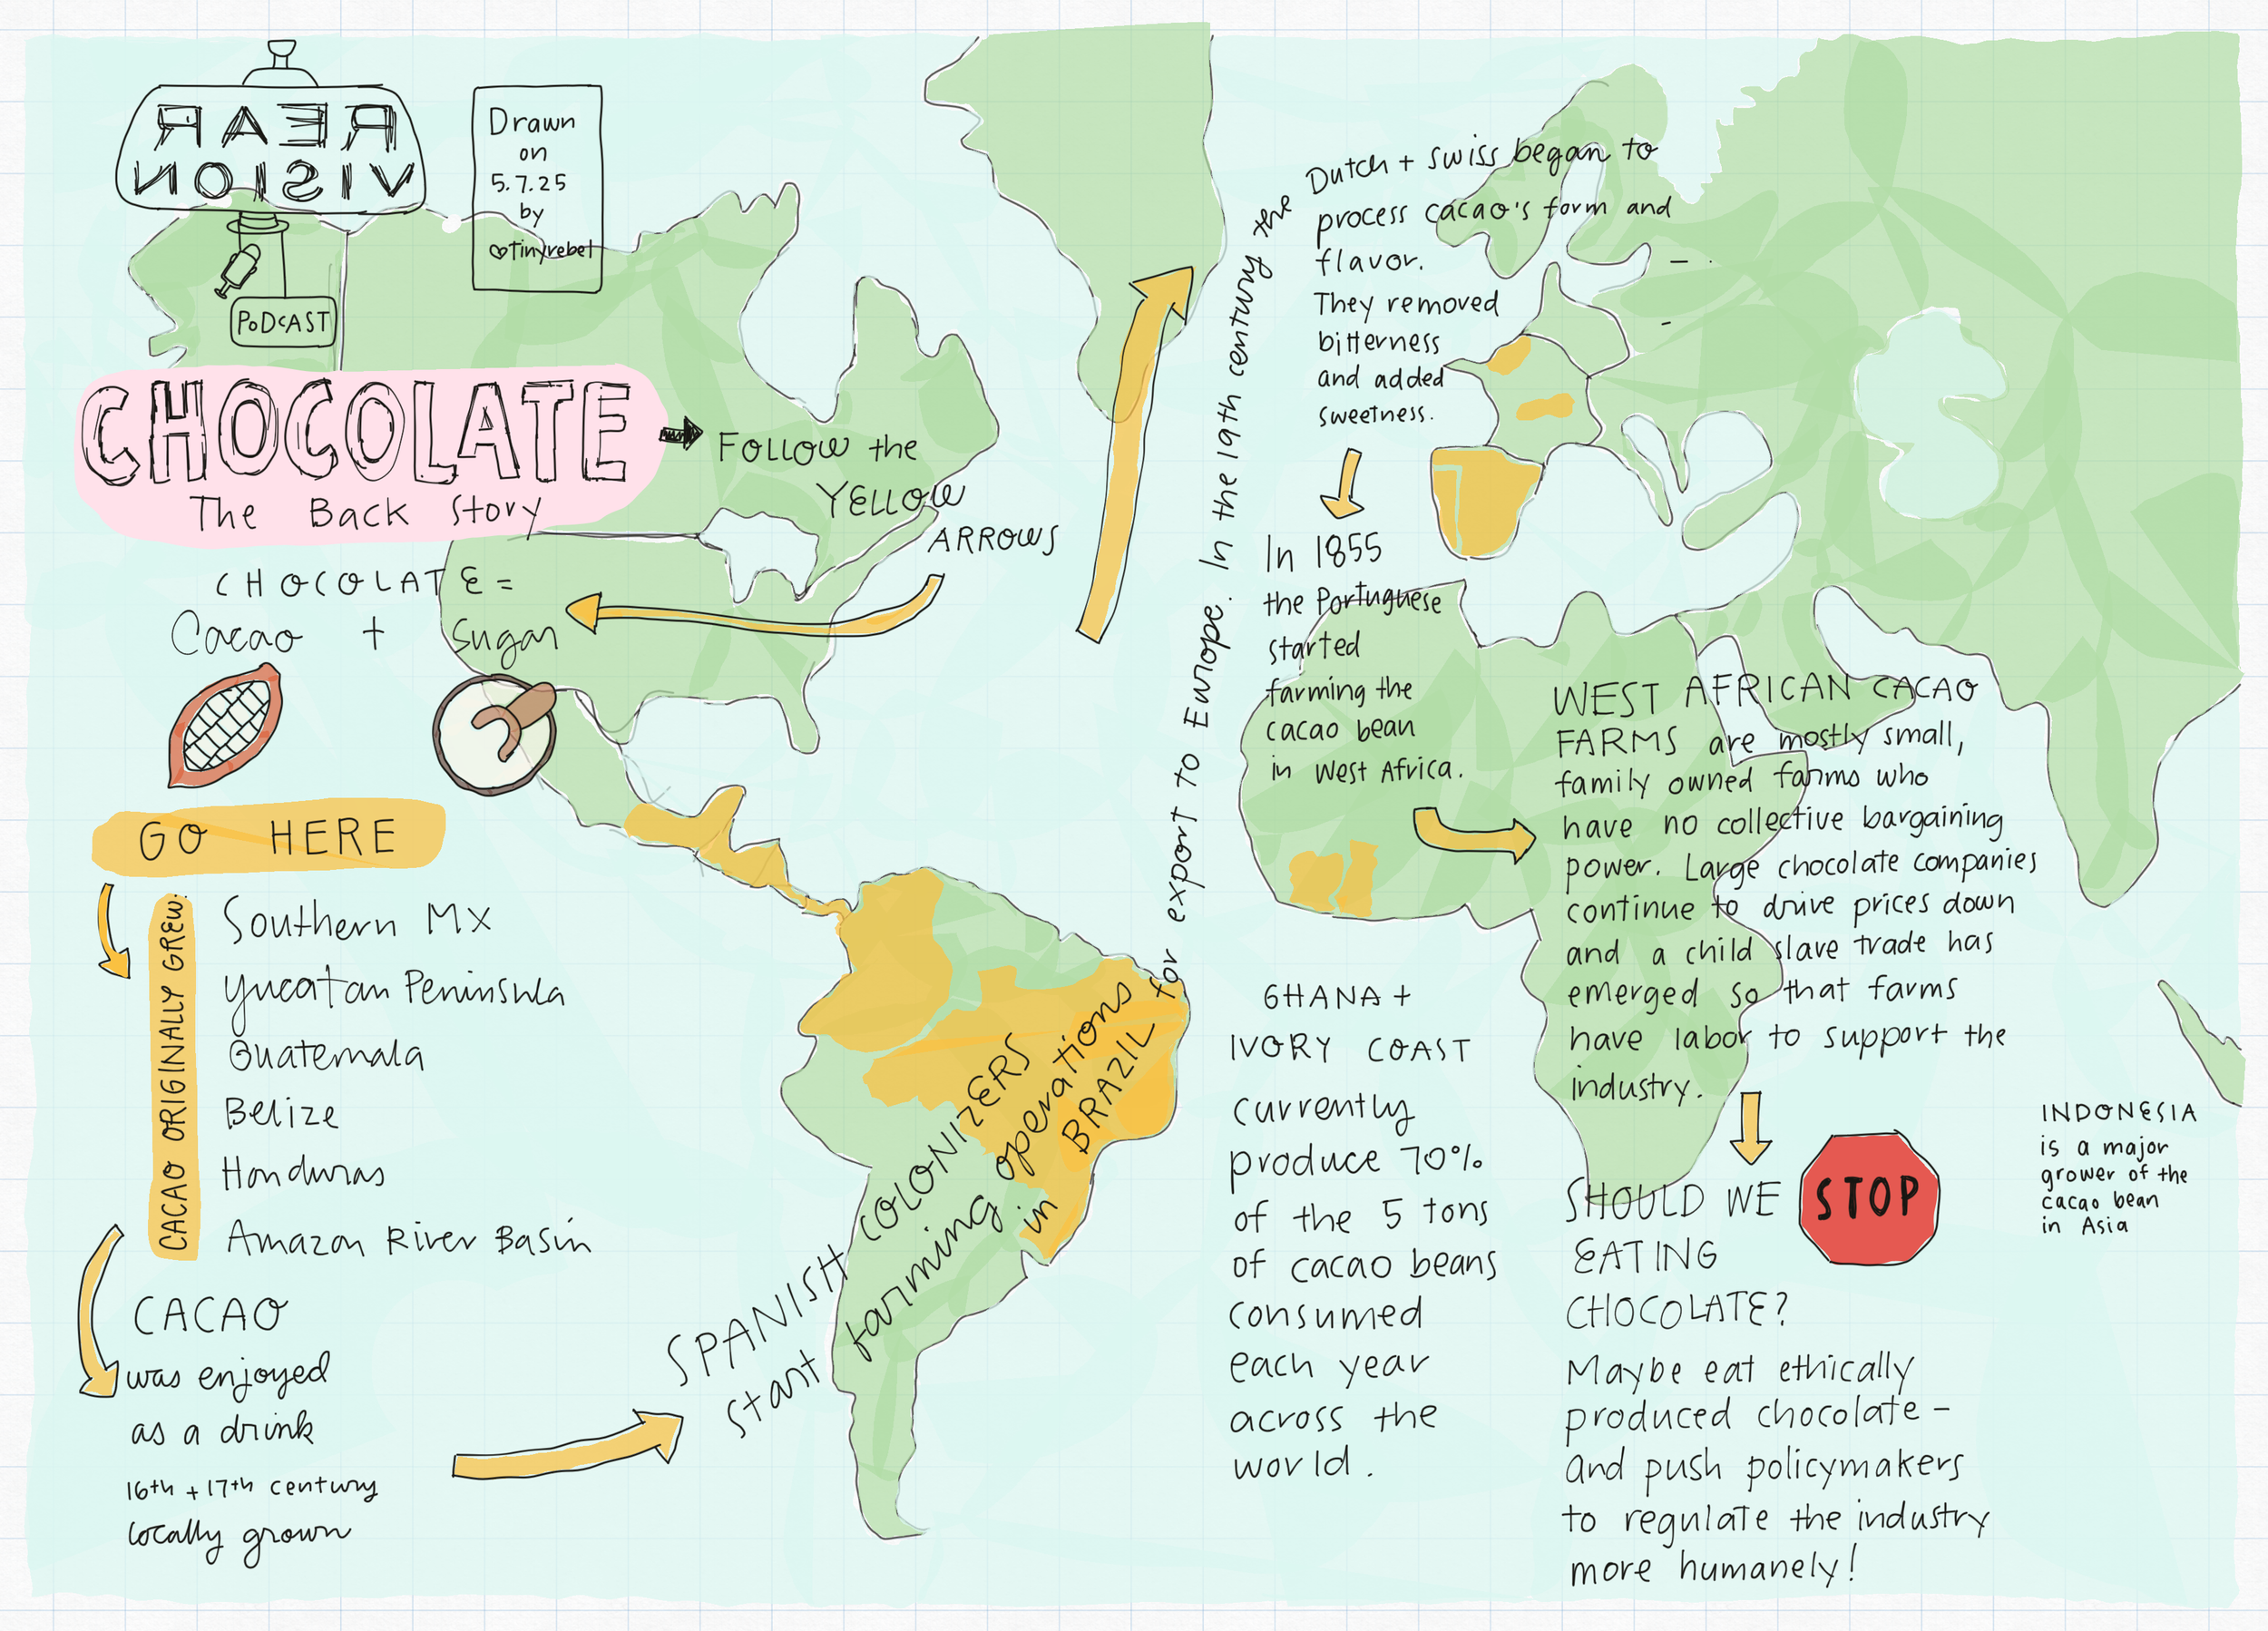 REAR
VISION
PODCAST
Drawn
on
5.7.25
by
♡tinyrebel
CHOCOLATE
The Back Story
FOLLOW the
YELLOW
ARROWS
CHOCOLATE =
Cacao + Sugar
GO HERE
CACAO ORIGINALLY GREW:
Southern MX
Yucatan Peninsula
Guatemala
Belize
Honduras
Amazon River Basin
CACAO
was enjoyed
as a drink
16th + 17th century
locally grown
SPANISH COLONIZERS
start farming operations
in BRAZIL
for export to Europe. In the 19th century the
Dutch + Swiss began to
process cacao's form and
flavor.
They removed
bitterness
and added
sweetness.
In 1855
the Portuguese
started
farming the
cacao bean
in West Africa.
WEST AFRICAN CACAO
FARMS are mostly small,
family owned farms who
have no collective bargaining
power. Large chocolate companies
continue to drive prices down
and a child slave trade has
emerged so that farms
have labor to support the
industry.
GHANA +
IVORY COAST
currently
produce 70%
of the 5 tons
of cacao beans
consumed
each year
across the
world.
SHOULD WE STOP
EATING
CHOCOLATE?
Maybe eat ethically
produced chocolate -
and push policymakers
to regulate the industry
more humanely!
INDONESIA
is a major
grower of the
cacao bean
in Asia